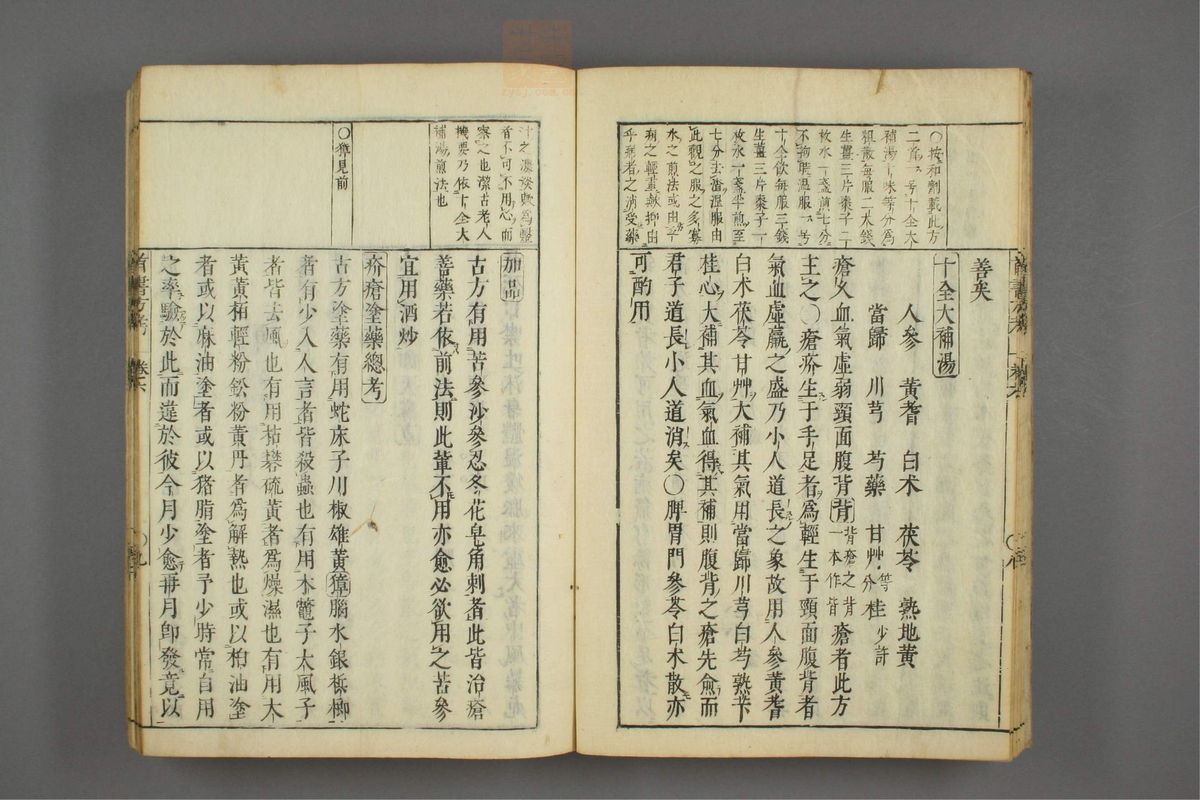 善矣
十全大補湯
人參 黃耆 白朮 茯苓 熟地黃
當歸 川芎 芍藥 甘艸等分 桂少許
瘡久血氣虛弱頸面腹背背背瘡之背一本作皆瘡者此方
主之○瘡疥生于手足者爲輕生于頸面腹背者
氣血虛羸之盛乃小人道長之象故用人參黃耆
白朮茯苓甘艸大補其氣用當歸川芎白芍熟芐
桂心大補其血氣血得其補則腹背之瘡先愈而
君子道長小人道消矣○脾胃門參苓白朮散亦
可酌用
○按和劑載此方
二首一号十全大
補湯十味等分爲
粗散每服二大錢
生薑三片棗子二
枚水一盞煎七分
不拘時溫服一号
十全飲每服三錢
生薑三片棗子一
枚水一盞半煎至
七分去滓溫服由
此觀之服之多寡
水之煎法或由
病之輕重歟抑由
乎病者之消受藥
加品
古方有用苦參沙參忍冬花皂角刺者此皆治瘡
善藥若依前法則此輩不用亦愈必欲用之苦參
宜用酒炒
疥瘡塗藥總考
古方塗藥有用蛇床子川椒雄黃獐腦水銀柢柳
者有少入人言者皆殺蟲也有用木鼈子大風子
者皆去風也有用枯礬硫黃者爲燥濕也有用大
黃黃栢輕粉鉛粉黃丹者爲解熱也或以柏油塗
者或以麻油塗者或以猪脂塗者予少時常自用
之率驗於此而違於彼今月少愈再月即發竟以
汁之濃淡歟爲醫
者不可不用心而
察之也潔古老人
機要乃依十全大
補湯煎法也
○樂見前